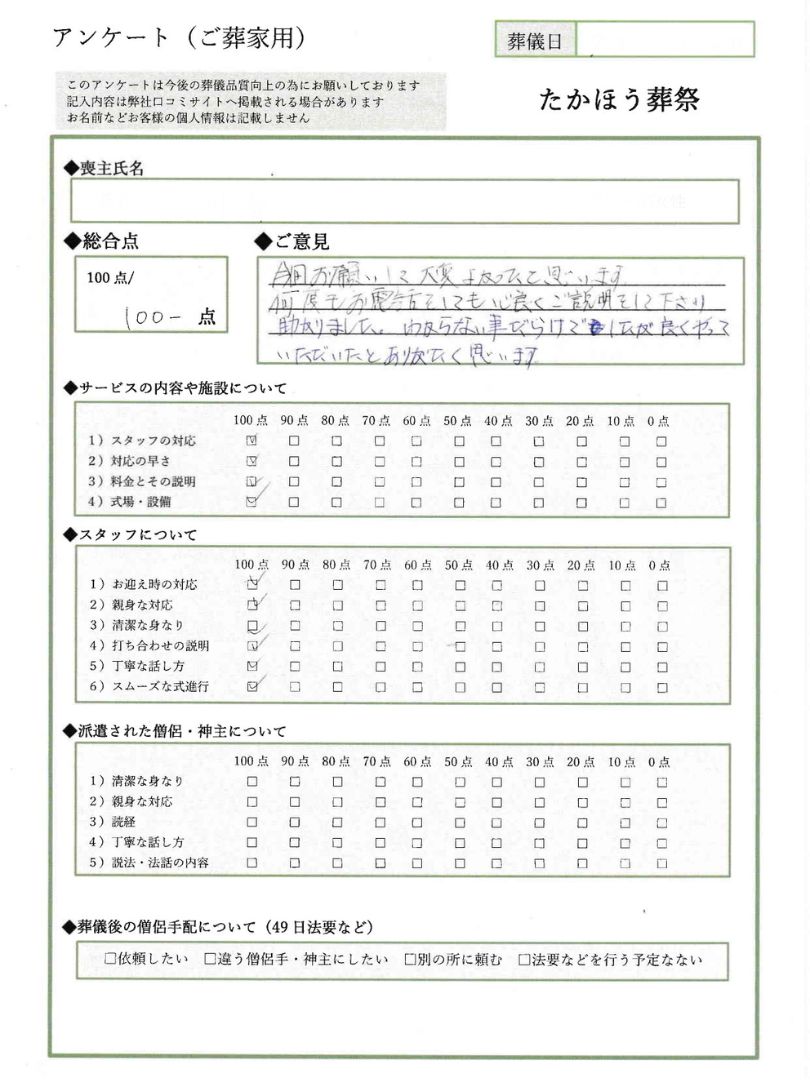 アンケート（ご葬家用）
葬儀日
このアンケートは今後の葬儀品質向上の為にお願いしております
記入内容は弊社口コミサイトへ掲載される場合があります
お名前などお客様の個人情報は記載しません
たかほう葬祭
◆喪主氏名
◆総合点
100点/
100- 点
◆ご意見
今回お願いして大変よかったと思います
何度もお電話をしても心良くご説明をして下さり
助かりました。わからない事だらけでしたが良くやって
いただいたとありがたく思います
◆サービスの内容や施設について
100点 90点 80点 70点 60点 50点 40点 30点 20点 10点 0点
1）スタッフの対応 ☑ □ □ □ □ □ □ □ □ □ □
2）対応の早さ ☑ □ □ □ □ □ □ □ □ □ □
3）料金とその説明 ☑ □ □ □ □ □ □ □ □ □ □
4）式場・設備 ☑ □ □ □ □ □ □ □ □ □ □
◆スタッフについて
100点 90点 80点 70点 60点 50点 40点 30点 20点 10点 0点
1）お迎え時の対応 ☑ □ □ □ □ □ □ □ □ □ □
2）親身な対応 ☑ □ □ □ □ □ □ □ □ □ □
3）清潔な身なり ☑ □ □ □ □ □ □ □ □ □ □
4）打ち合わせの説明 ☑ □ □ □ □ □ □ □ □ □ □
5）丁寧な話し方 ☑ □ □ □ □ □ □ □ □ □ □
6）スムーズな式進行 ☑ □ □ □ □ □ □ □ □ □ □
◆派遣された僧侶・神主について
100点 90点 80点 70点 60点 50点 40点 30点 20点 10点 0点
1）清潔な身なり □ □ □ □ □ □ □ □ □ □ □
2）親身な対応 □ □ □ □ □ □ □ □ □ □ □
3）読経 □ □ □ □ □ □ □ □ □ □ □
4）丁寧な話し方 □ □ □ □ □ □ □ □ □ □ □
5）説法・法話の内容 □ □ □ □ □ □ □ □ □ □ □
◆葬儀後の僧侶手配について（49日法要など）
□依頼したい □違う僧侶手・神主にしたい □別の所に頼む □法要などを行う予定なない